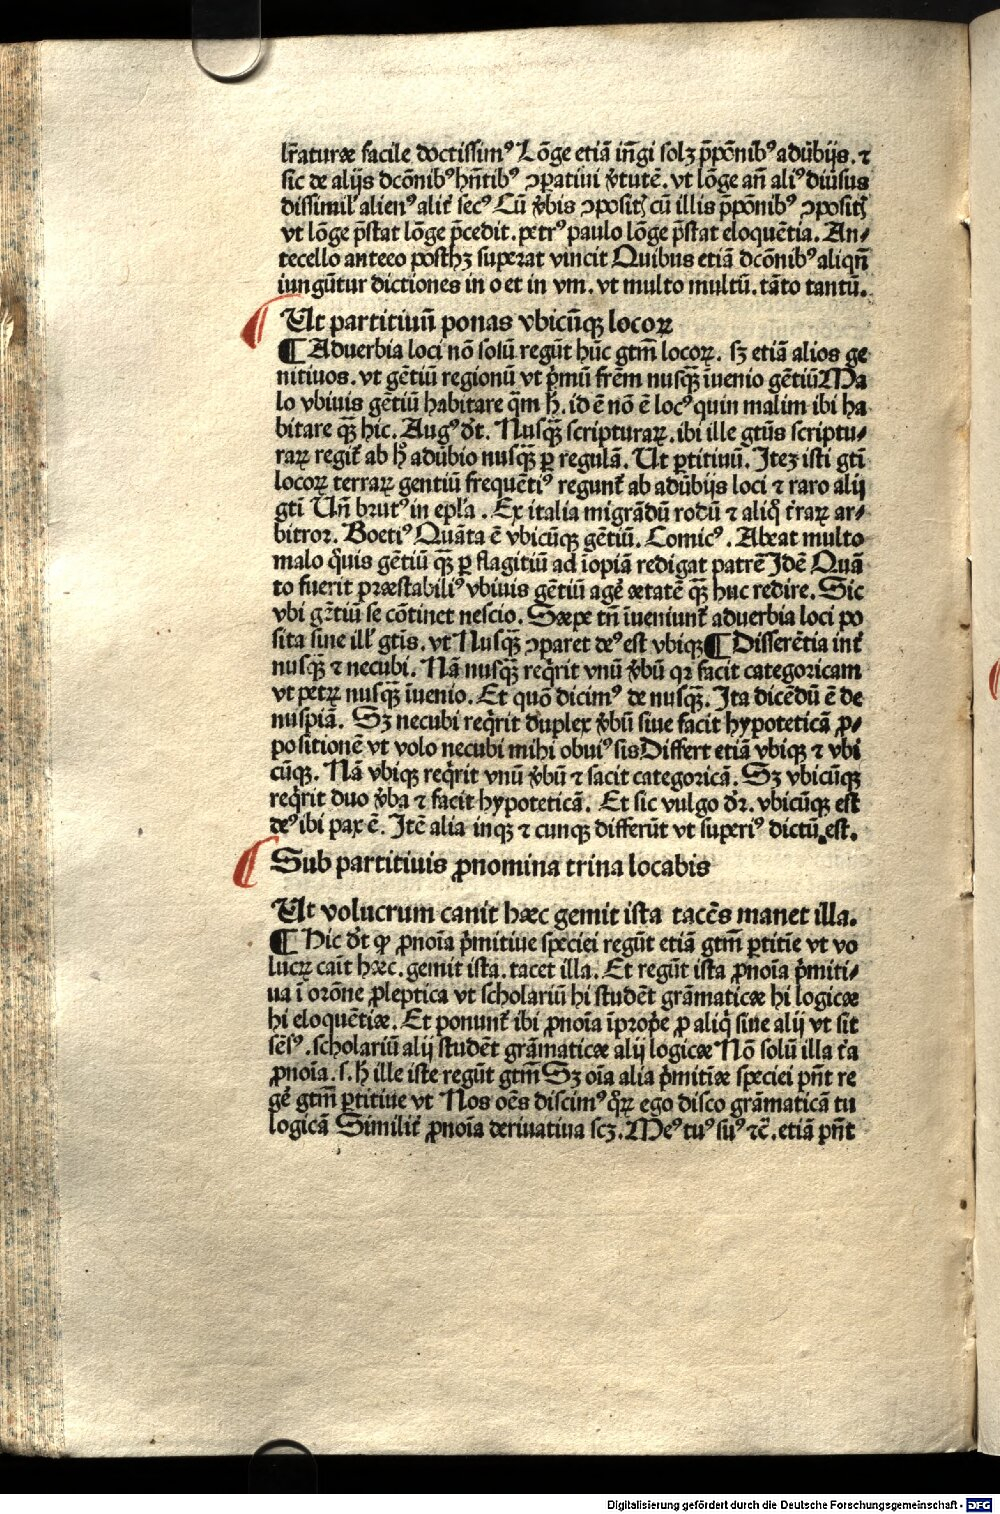 lr̄aturæ facile doctissimꝰ Lōge etiā iūgi solꝫ p̄pōnibꝰ adūbijs. ⁊
sic de alijs dcōnibꝰ hn̄tibꝰ ↄpatiui v̓tutē. vt lōge an̄ aliꝰ diūsus
dissimil̓ alienꝰ alit̓ secꝰ Cū v̓bis ↄposit̓ cū illis p̄pōnibꝰ ↄposit̓
vt lōge p̄stat lōge p̄cedit. petrꝰ paulo lōge p̄stat eloquētia. An-
tecello anteeo posthꝫ superat vincit Quibus etiā dcōnibꝰ aliqn̄
iungūtur dictiones in o et in vm. vt multo multū. tāto tantū.
Ut partitiuū ponas vbicūqꝫ locoꝝ
¶ Aduerbia loci nō solū regūt hūc gtm̄ locoꝝ. sꝫ etiā alios ge
nitiuos. vt gētiū regionū vt p̓mū frēm nusqꝫ̄ īuenio gētiū Ma
lo vbiuis gētiū habitare qm̄ h̄. id ē nō ē locꝰ quin malim ibi ha
bitare qꝫ̄ hic. Augꝰ dt̓. Nusqꝫ̄ scripturaꝝ. ibi ille gtūs scriptu-
raꝝ regit̓ ab hͦ adūbio nusqꝫ̄ ꝑ regulā. Ut ꝑtitiuū. Iteꝫ isti gtī
locoꝝ terraꝝ gentiū frequētiꝰ regunt̓ ab adūbijs loci ⁊ raro alij
gtī Un̄ brutꝰ in epl̓a. Ex italia migrādū rodū ⁊ aliq̓ t̓raꝝ ar-
bitror. Boetiꝰ Quāta ē vbicūqꝫ gētiū. Comicꝰ. Abeat multo
malo q̓uis gētiū qꝫ̄ ꝑ flagitiū ad īopiā redigat patrē Idē Quā
to fuerit præstabiliꝰ vbiuis gētiū age̓ ætatē qꝫ̄ huc redire. Sic
vbi gētiū se cōtinet nescio. Sæpe tn̄ īueniunt̓ aduerbia loci po
sita sine ill̓ gtīs. vt Nusqꝫ̄ ↄparet deꝰ est vbiqꝫ ¶ Differētia int̓
nusqꝫ̄ ⁊ necubi. Nā nusqꝫ̄ req̓rit vnū v̓bū qꝛ facit categoricam
vt petrꝝ nusqꝫ̄ īuenio. Et quō dicimꝰ de nusqꝫ̄. Ita dicēdū ē de
nuspiā. Sꝫ necubi req̓rit duplex v̓bū siue facit hypoteticā ꝓ-
positionē vt volo necubi mihi obuiꝰ sis Differt etiā vbiqꝫ ⁊ vbi
cūqꝫ. Nā vbiqꝫ req̓rit vnū v̓bū ⁊ facit categoricā. Sꝫ vbicūqꝫ
req̓rit duo v̓ba ⁊ facit hypoteticā. Et sic vulgo dr̓. vbicūqꝫ est
deꝰ ibi pax ē. Itē alia inqꝫ ⁊ cunqꝫ differūt vt superiꝰ dictū est.
Sub partitiuis ꝓnomina trina locabis
Ut volucrum canit hæc gemit ista tacēs manet illa.
¶ Hic dt̓ ꝙ ꝓnoīa p̓mitiue speciei regūt etiā gtm̄ ꝑtitīe vt vo
lucꝝ canīt hæc. gemit ista. tacet illa. Et regūt ista ꝓnoīa p̓miti-
ua ī orōne ꝓleptica vt scholariū hi studēt grāmaticæ hi logicæ
hi eloquētiæ. Et ponunt̓ ibi ꝓnoīa īprop̓e ꝓ aliq̓ siue alij vt sit
sēsꝰ. scholariū alij studēt grāmaticæ alij logicæ Nō solū illa t̓a
ꝓnoīa .s. h̄ ille iste regūt gtm̄ Sꝫ oīa alia p̓mitīæ speciei pn̄t re
ge̓ gtm̄ ꝑtitiue vt Nos oēs discimꝰ q̓ꝝ ego disco grāmaticā tu
logicā Similit̓ ꝓnoīa deriuatiua scꝫ. Meꝰ tuꝰ suꝰ ⁊c̄. etiā pn̄t
Digitalisierung gefördert durch die Deutsche Forschungsgemeinschaft - DFG